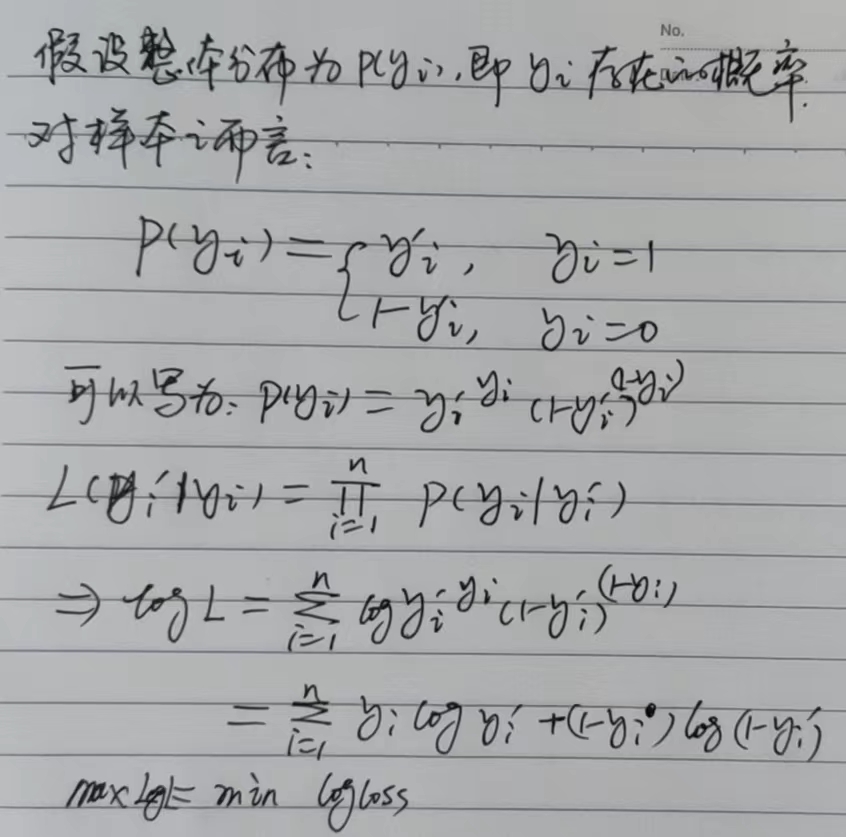 No.
假设整体分布为 P(yᵢ), 即 yᵢ 存在的概率.
对样本i而言:
P(yᵢ) = { yᵢ′, yᵢ=1
1-yᵢ′, yᵢ=0
可以写为: P(yᵢ) = yᵢ′^yᵢ (1-yᵢ′)^(1-yᵢ)
L(yᵢ′|yᵢ) = ∏_{i=1}^{n} P(yᵢ|yᵢ′)
⇒ log L = ∑_{i=1}^{n} log yᵢ′^yᵢ (1-yᵢ′)^(1-yᵢ)
= ∑_{i=1}^{n} yᵢ log yᵢ′ + (1-yᵢ) log (1-yᵢ′)
max LogL = min logloss